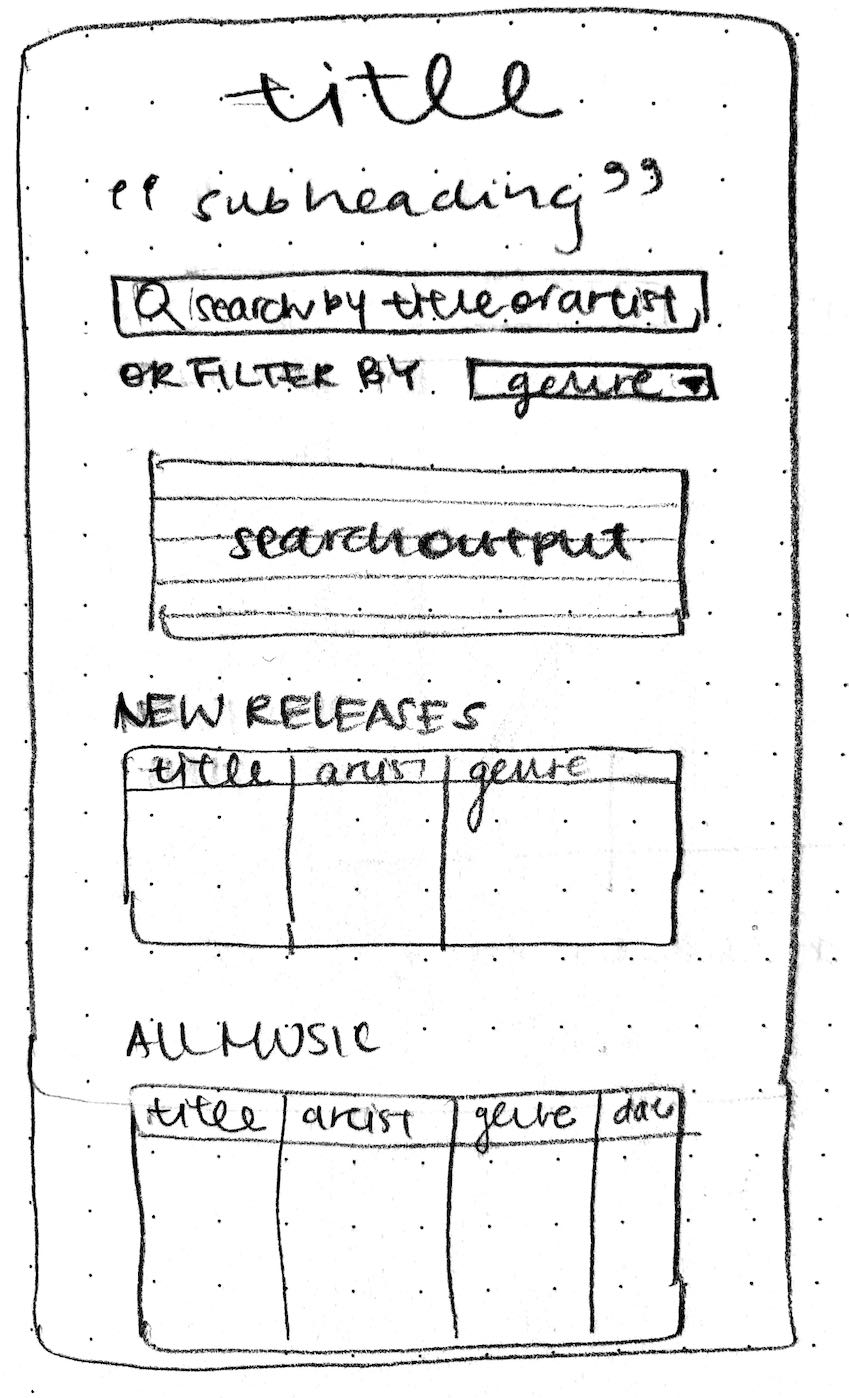 title
"subheading"
search by title or artist
OR FILTER BY genre
search output
NEW RELEASES
title artist genre
ALL MUSIC
title artist genre date